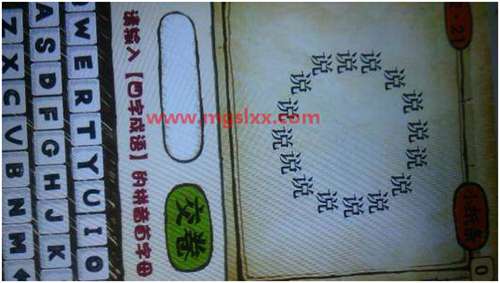 说说说说说说说说说说说说说说说说
www.mgslxx.com
交卷
请输入【四字成语】的拼音首字母
W E R T Y U I O
A S D F G H J K
Z X C V B N M